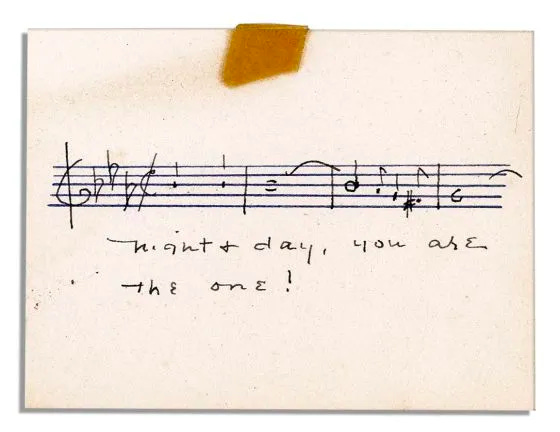 night & day, you are
the one!